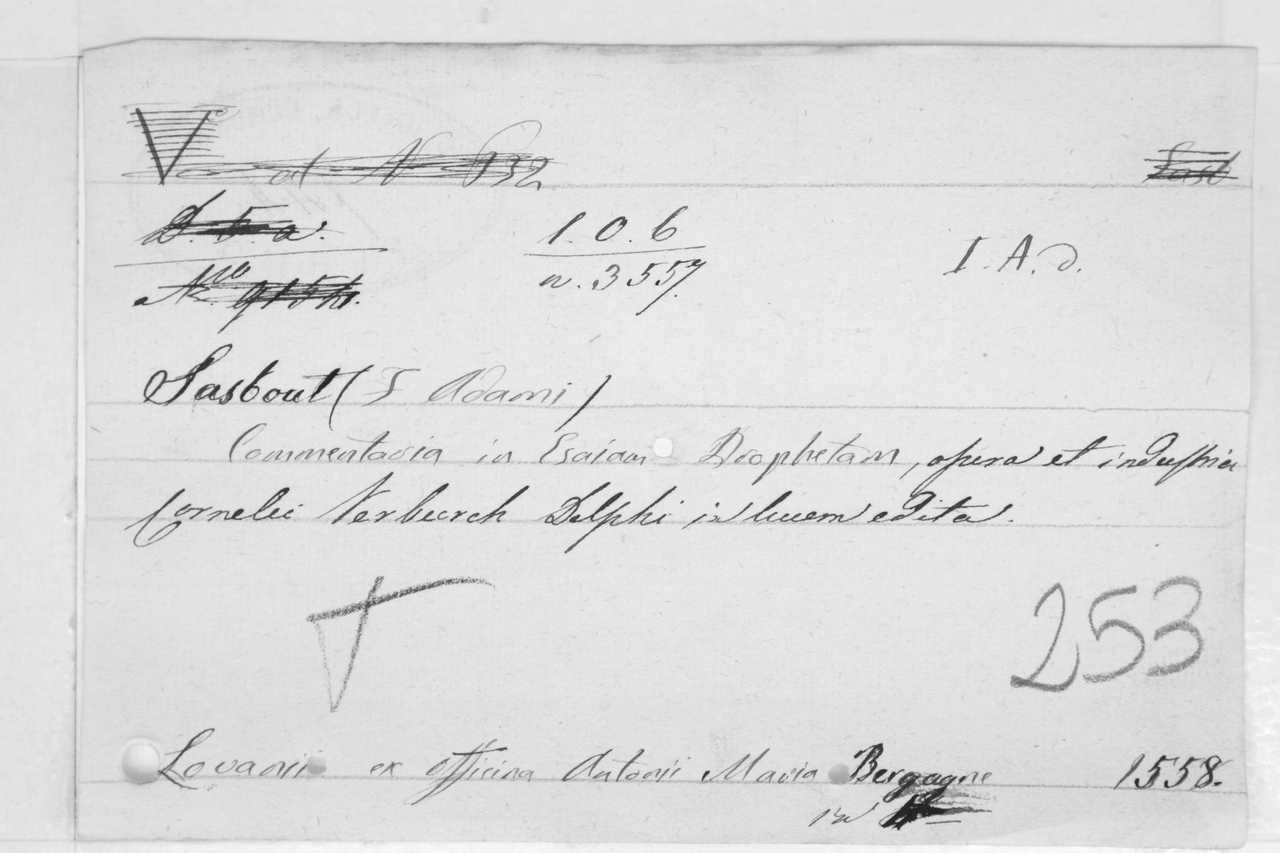 1. O. 6
n. 3557.
I. A. d.
Sasbout (F Adami)
Commentaria in Esaiam Prophetam, opera et industria
Cornelii Verburch Delphi in lucem edita.
253
Lovanii ex officina Antonii Maria Bergagne 1558.
in